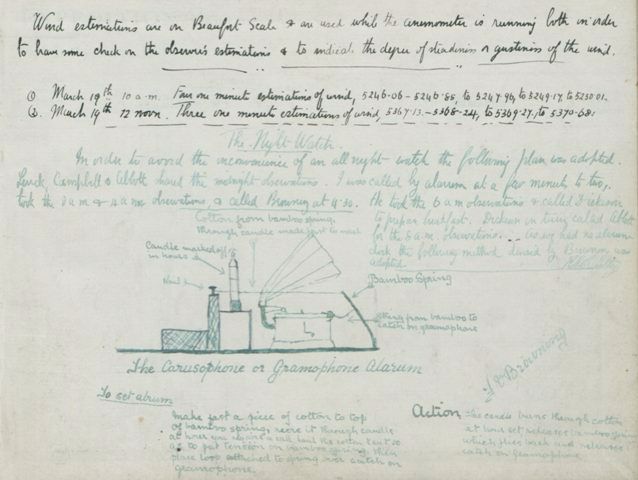 Wind estimations are on Beaufort Scale & are used while the anemometer is running both in order
to have some check on the observer's estimations & to indicate the degree of steadiness or gustiness of the wind.
① March 19th 10 a.m. Four one minute estimations of wind, 5246.06 - 5246.85, to 5247.96, to 5249.17, to 5250.01.
②. March 19th 12 noon. Three one minute estimations of wind, 5367.13 - 5368.24, to 5369.27, to 5370.68.
The Night Watch.
In order to avoid the inconvenience of an all night watch the following plan was adopted.
Levick, Campbell & Abbott shared the midnight observations. I was called by alarum at a few minutes to two,
took the 2 a m & 4 a m observations & called Browning at 4.30.
He took the 6 a m observations & called Dickason
to prepare breakfast. Dickason in turn called Abbott
for the 8 a.m. observations. As we had no alarum
clock the following method devised by Browning was
adopted.
Cotton from bamboo spring,
through candle made fast to nail
Candle marked off
in hours
Nail
Bamboo Spring
string from bamboo to
catch on gramophone
The Carusophone or Gramophone Alarum
F. V. Browning
To set alarum
Make fast a piece of cotton to top
of bamboo spring, reeve it through candle
at hour you require a call, haul the cotton taut so
as to put tension on bamboo spring, then
place loop attached to spring over catch on
gramophone.
Action = as candle burns through cotton
at hour set releases bamboo spring
which flies back and releases
catch on gramophone